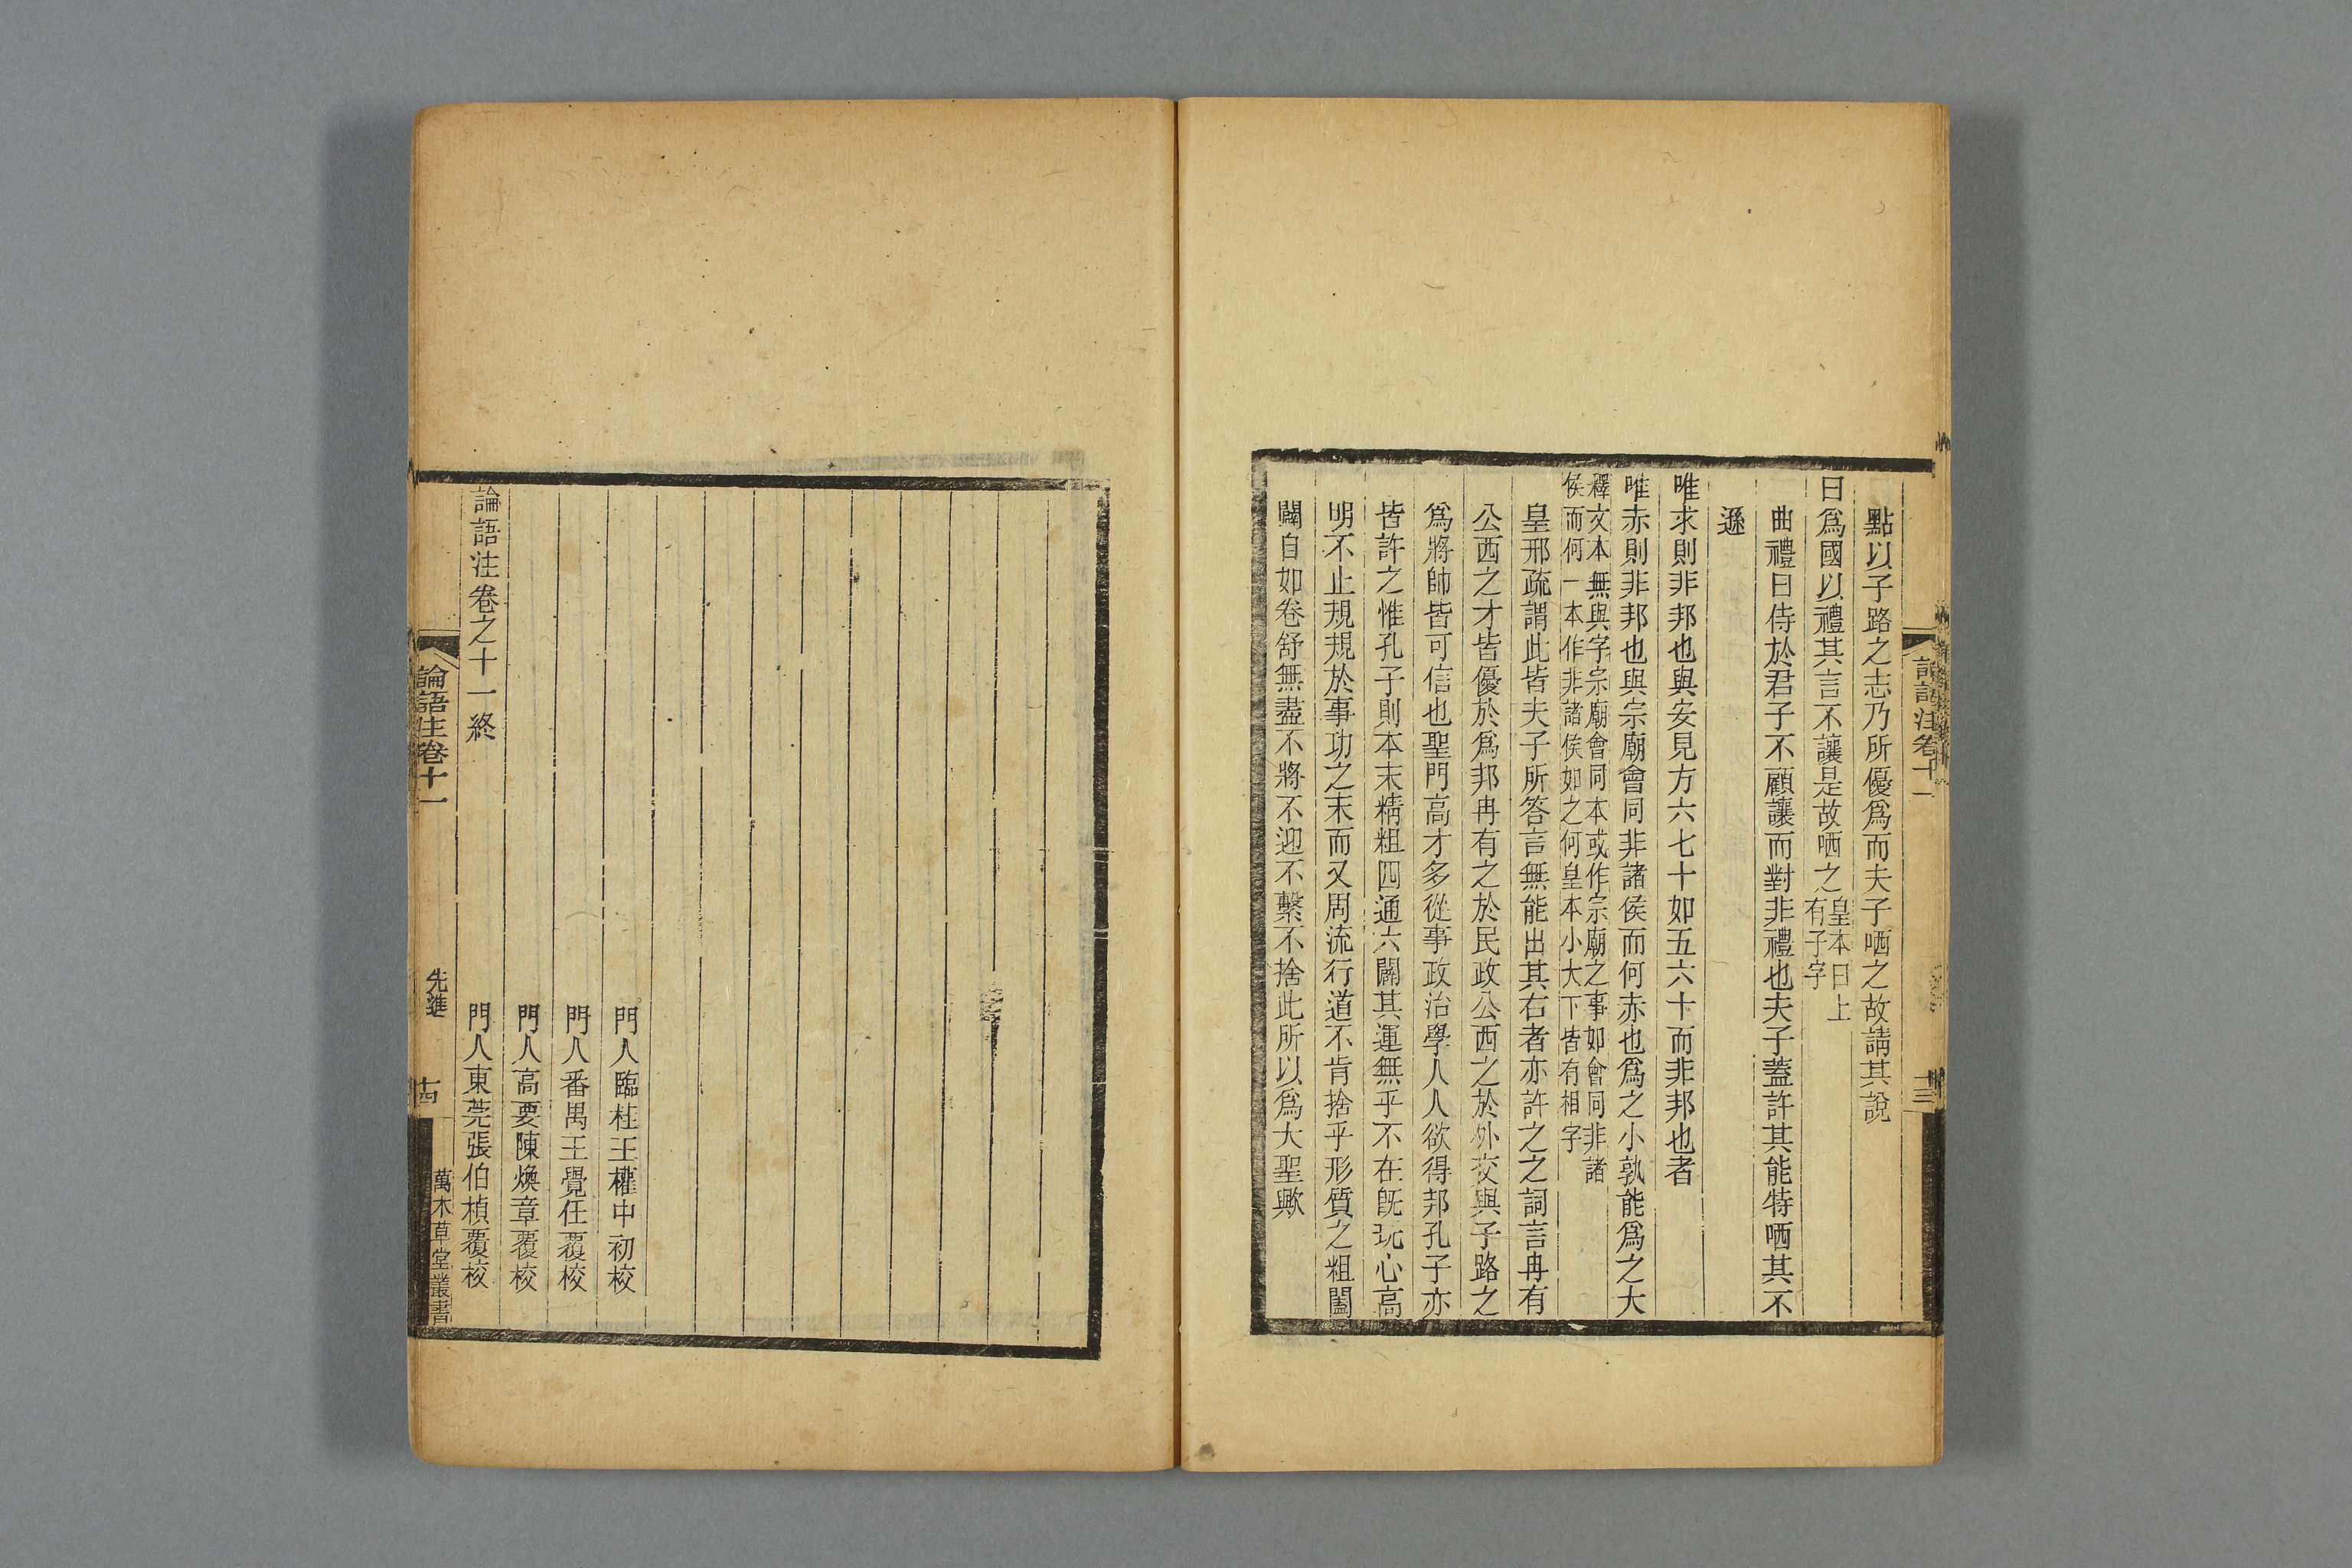 論語注卷十一
十三
點以子路之志乃所優爲而夫子哂之故請其說
曰爲國以禮其言不讓是故哂之皇本曰上有子字
曲禮曰侍於君子不顧讓而對非禮也夫子蓋許其能特哂其不
遜
唯求則非邦也與安見方六七十如五六十而非邦也者
唯赤則非邦也與宗廟會同非諸侯而何赤也爲之小孰能爲之大
釋文本無與字宗廟會同本或作宗廟之事如會同非諸
侯而何一本作非諸侯如之何皇本小大下皆有相字
皇邢疏謂此皆夫子所答言無能出其右者亦許之之詞言冉有
公西之才皆優於爲邦冉有之於民政公西之於外交與子路之
爲將帥皆可信也聖門高才多從事政治學人人欲得邦孔子亦
皆許之惟孔子則本末精粗四通六闢其運無乎不在旣玩心高
明不止規規於事功之末而又周流行道不肯捨乎形質之粗闔
闢自如卷舒無盡不將不迎不繫不捨此所以爲大聖歟
門人臨桂王權中初校
門人番禺王覺任覆校
門人高要陳煥章覆校
論語注卷之十一終
門人東莞張伯楨覆校
論語注卷十一
先進
十四
萬木草堂叢書